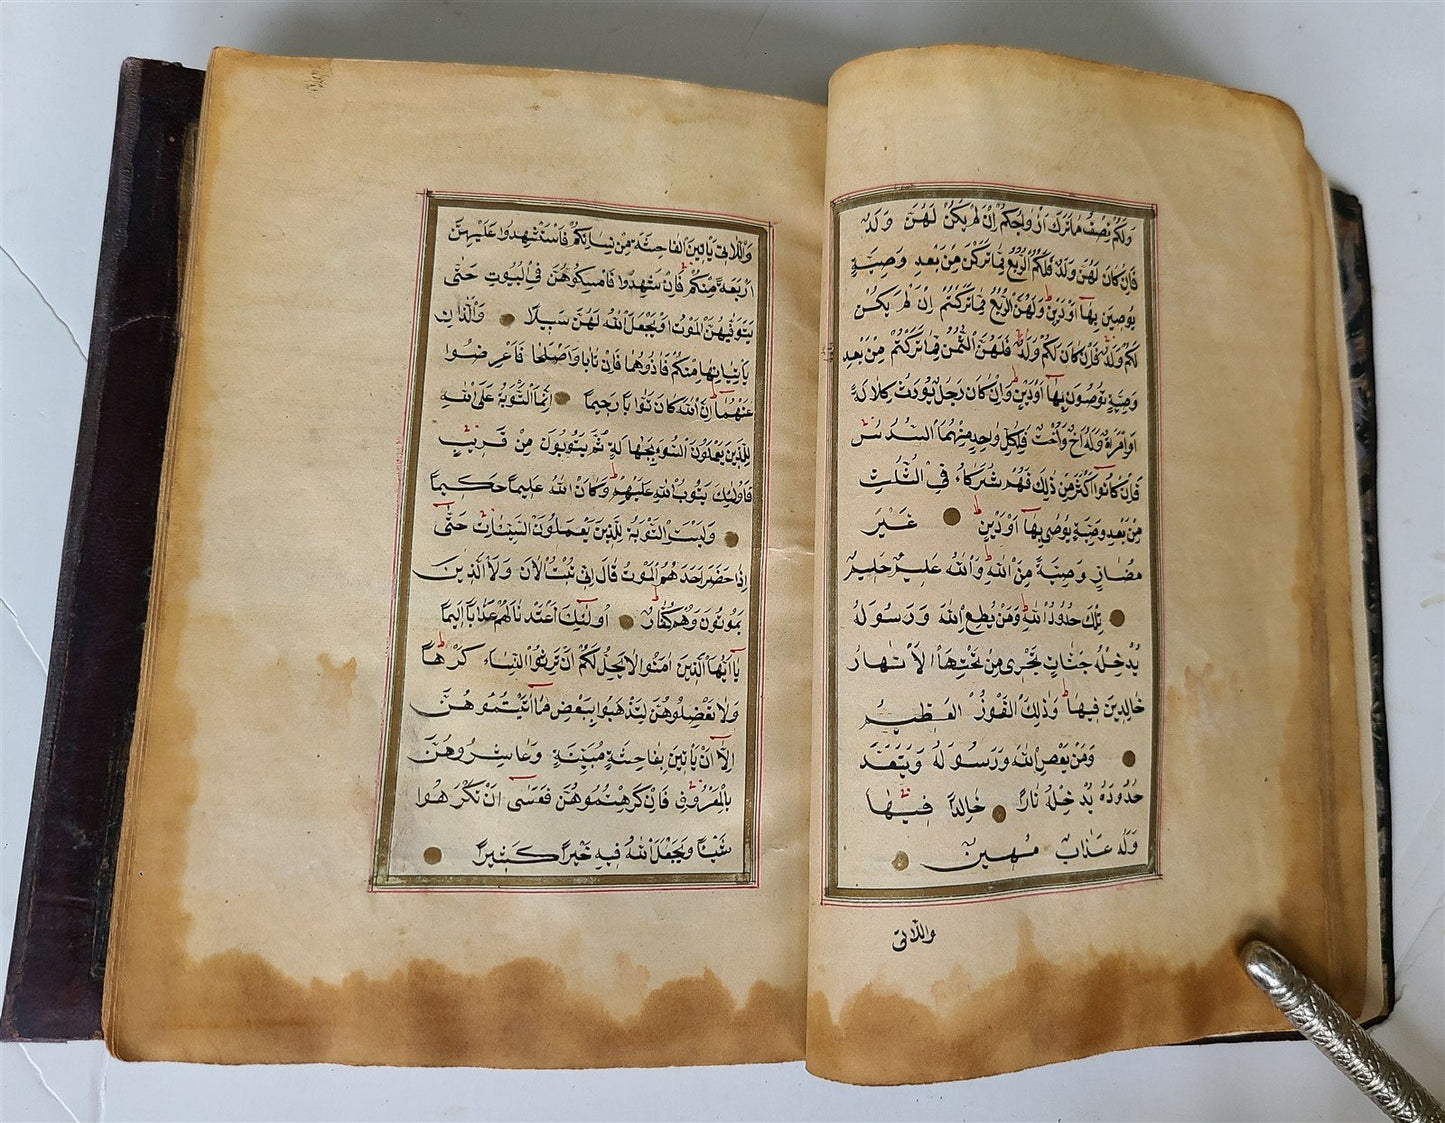 وَلَكُمْ نِصْفُ مَا تَرَكَ اَزْوَاجُكُمْ اِنْ لَمْ يَكُنْ لَهُنَّ وَلَدٌ
فَاِنْ كَانَ لَهُنَّ وَلَدٌ فَلَكُمُ الرُّبُعُ مِمَّا تَرَكْنَ مِنْ بَعْدِ وَصِيَّةٍ
يُوصِينَ بِهَا اَوْ دَيْنٍ وَلَهُنَّ الرُّبُعُ مِمَّا تَرَكْتُمْ اِنْ لَمْ يَكُنْ
لَكُمْ وَلَدٌ فَاِنْ كَانَ لَكُمْ وَلَدٌ فَلَهُنَّ الثُّمُنُ مِمَّا تَرَكْتُمْ مِنْ بَعْدِ
وَصِيَّةٍ تُوصُونَ بِهَا اَوْ دَيْنٍ وَاِنْ كَانَ رَجُلٌ يُورَثُ كَلَالَةً
اَوِ امْرَاَةٌ وَلَهُ اَخٌ وَاُخْتٌ فَلِكُلِّ وَاحِدٍ مِنْهُمَا السُّدُسُ
فَاِنْ كَانُوا اَكْثَرَ مِنْ ذٰلِكَ فَهُمْ شُرَكَاءُ فِي الثُّلُثِ
مِنْ بَعْدِ وَصِيَّةٍ يُوصٰى بِهَا اَوْ دَيْنٍ غَيْرَ
مُضَارٍّ وَصِيَّةً مِنَ اللّٰهِ وَاللّٰهُ عَلِيمٌ حَلِيمٌ
تِلْكَ حُدُودُ اللّٰهِ وَمَنْ يُطِعِ اللّٰهَ وَرَسُولَهُ
يُدْخِلْهُ جَنَّاتٍ تَجْرِى مِنْ تَحْتِهَا الْاَنْهَارُ
خَالِدِينَ فِيهَا وَذٰلِكَ الْفَوْزُ الْعَظِيمُ
وَمَنْ يَعْصِ اللّٰهَ وَرَسُولَهُ وَيَتَعَدَّ
حُدُودَهُ يُدْخِلْهُ نَارًا خَالِدًا فِيهَا
وَلَهُ عَذَابٌ مُهِينٌ
واللّاتى
وَاللَّاتِى يَاْتِينَ الْفَاحِشَةَ مِنْ نِسَائِكُمْ فَاسْتَشْهِدُوا عَلَيْهِنَّ
اَرْبَعَةً مِنْكُمْ فَاِنْ شَهِدُوا فَاَمْسِكُوهُنَّ فِي الْبُيُوتِ حَتّٰى
يَتَوَفّٰيهُنَّ الْمَوْتُ اَوْ يَجْعَلَ اللّٰهُ لَهُنَّ سَبِيلًا وَالَّذَانِ
يَاْتِيَانِهَا مِنْكُمْ فَاٰذُوهُمَا فَاِنْ تَابَا وَاَصْلَحَا فَاَعْرِضُوا
عَنْهُمَا اِنَّ اللّٰهَ كَانَ تَوَّابًا رَحِيمًا اِنَّمَا التَّوْبَةُ عَلَى اللّٰهِ
لِلَّذِينَ يَعْمَلُونَ السُّوءَ بِجَهَالَةٍ ثُمَّ يَتُوبُونَ مِنْ قَرِيبٍ
فَاُولٰئِكَ يَتُوبُ اللّٰهُ عَلَيْهِمْ وَكَانَ اللّٰهُ عَلِيمًا حَكِيمًا
وَلَيْسَتِ التَّوْبَةُ لِلَّذِينَ يَعْمَلُونَ السَّيِّئَاتِ حَتّٰى
اِذَا حَضَرَ اَحَدَهُمُ الْمَوْتُ قَالَ اِنِّى تُبْتُ الْاٰنَ وَلَا الَّذِينَ
يَمُوتُونَ وَهُمْ كُفَّارٌ اُولٰئِكَ اَعْتَدْنَا لَهُمْ عَذَابًا اَلِيمًا
يَا اَيُّهَا الَّذِينَ اٰمَنُوا لَا يَحِلُّ لَكُمْ اَنْ تَرِثُوا النِّسَاءَ كَرْهًا
وَلَا تَعْضُلُوهُنَّ لِتَذْهَبُوا بِبَعْضِ مَا اٰتَيْتُمُوهُنَّ
اِلَّا اَنْ يَاْتِينَ بِفَاحِشَةٍ مُبَيِّنَةٍ وَعَاشِرُوهُنَّ
بِالْمَعْرُوفِ فَاِنْ كَرِهْتُمُوهُنَّ فَعَسٰى اَنْ تَكْرَهُوا
شَيْئًا وَيَجْعَلَ اللّٰهُ فِيهِ خَيْرًا كَثِيرًا